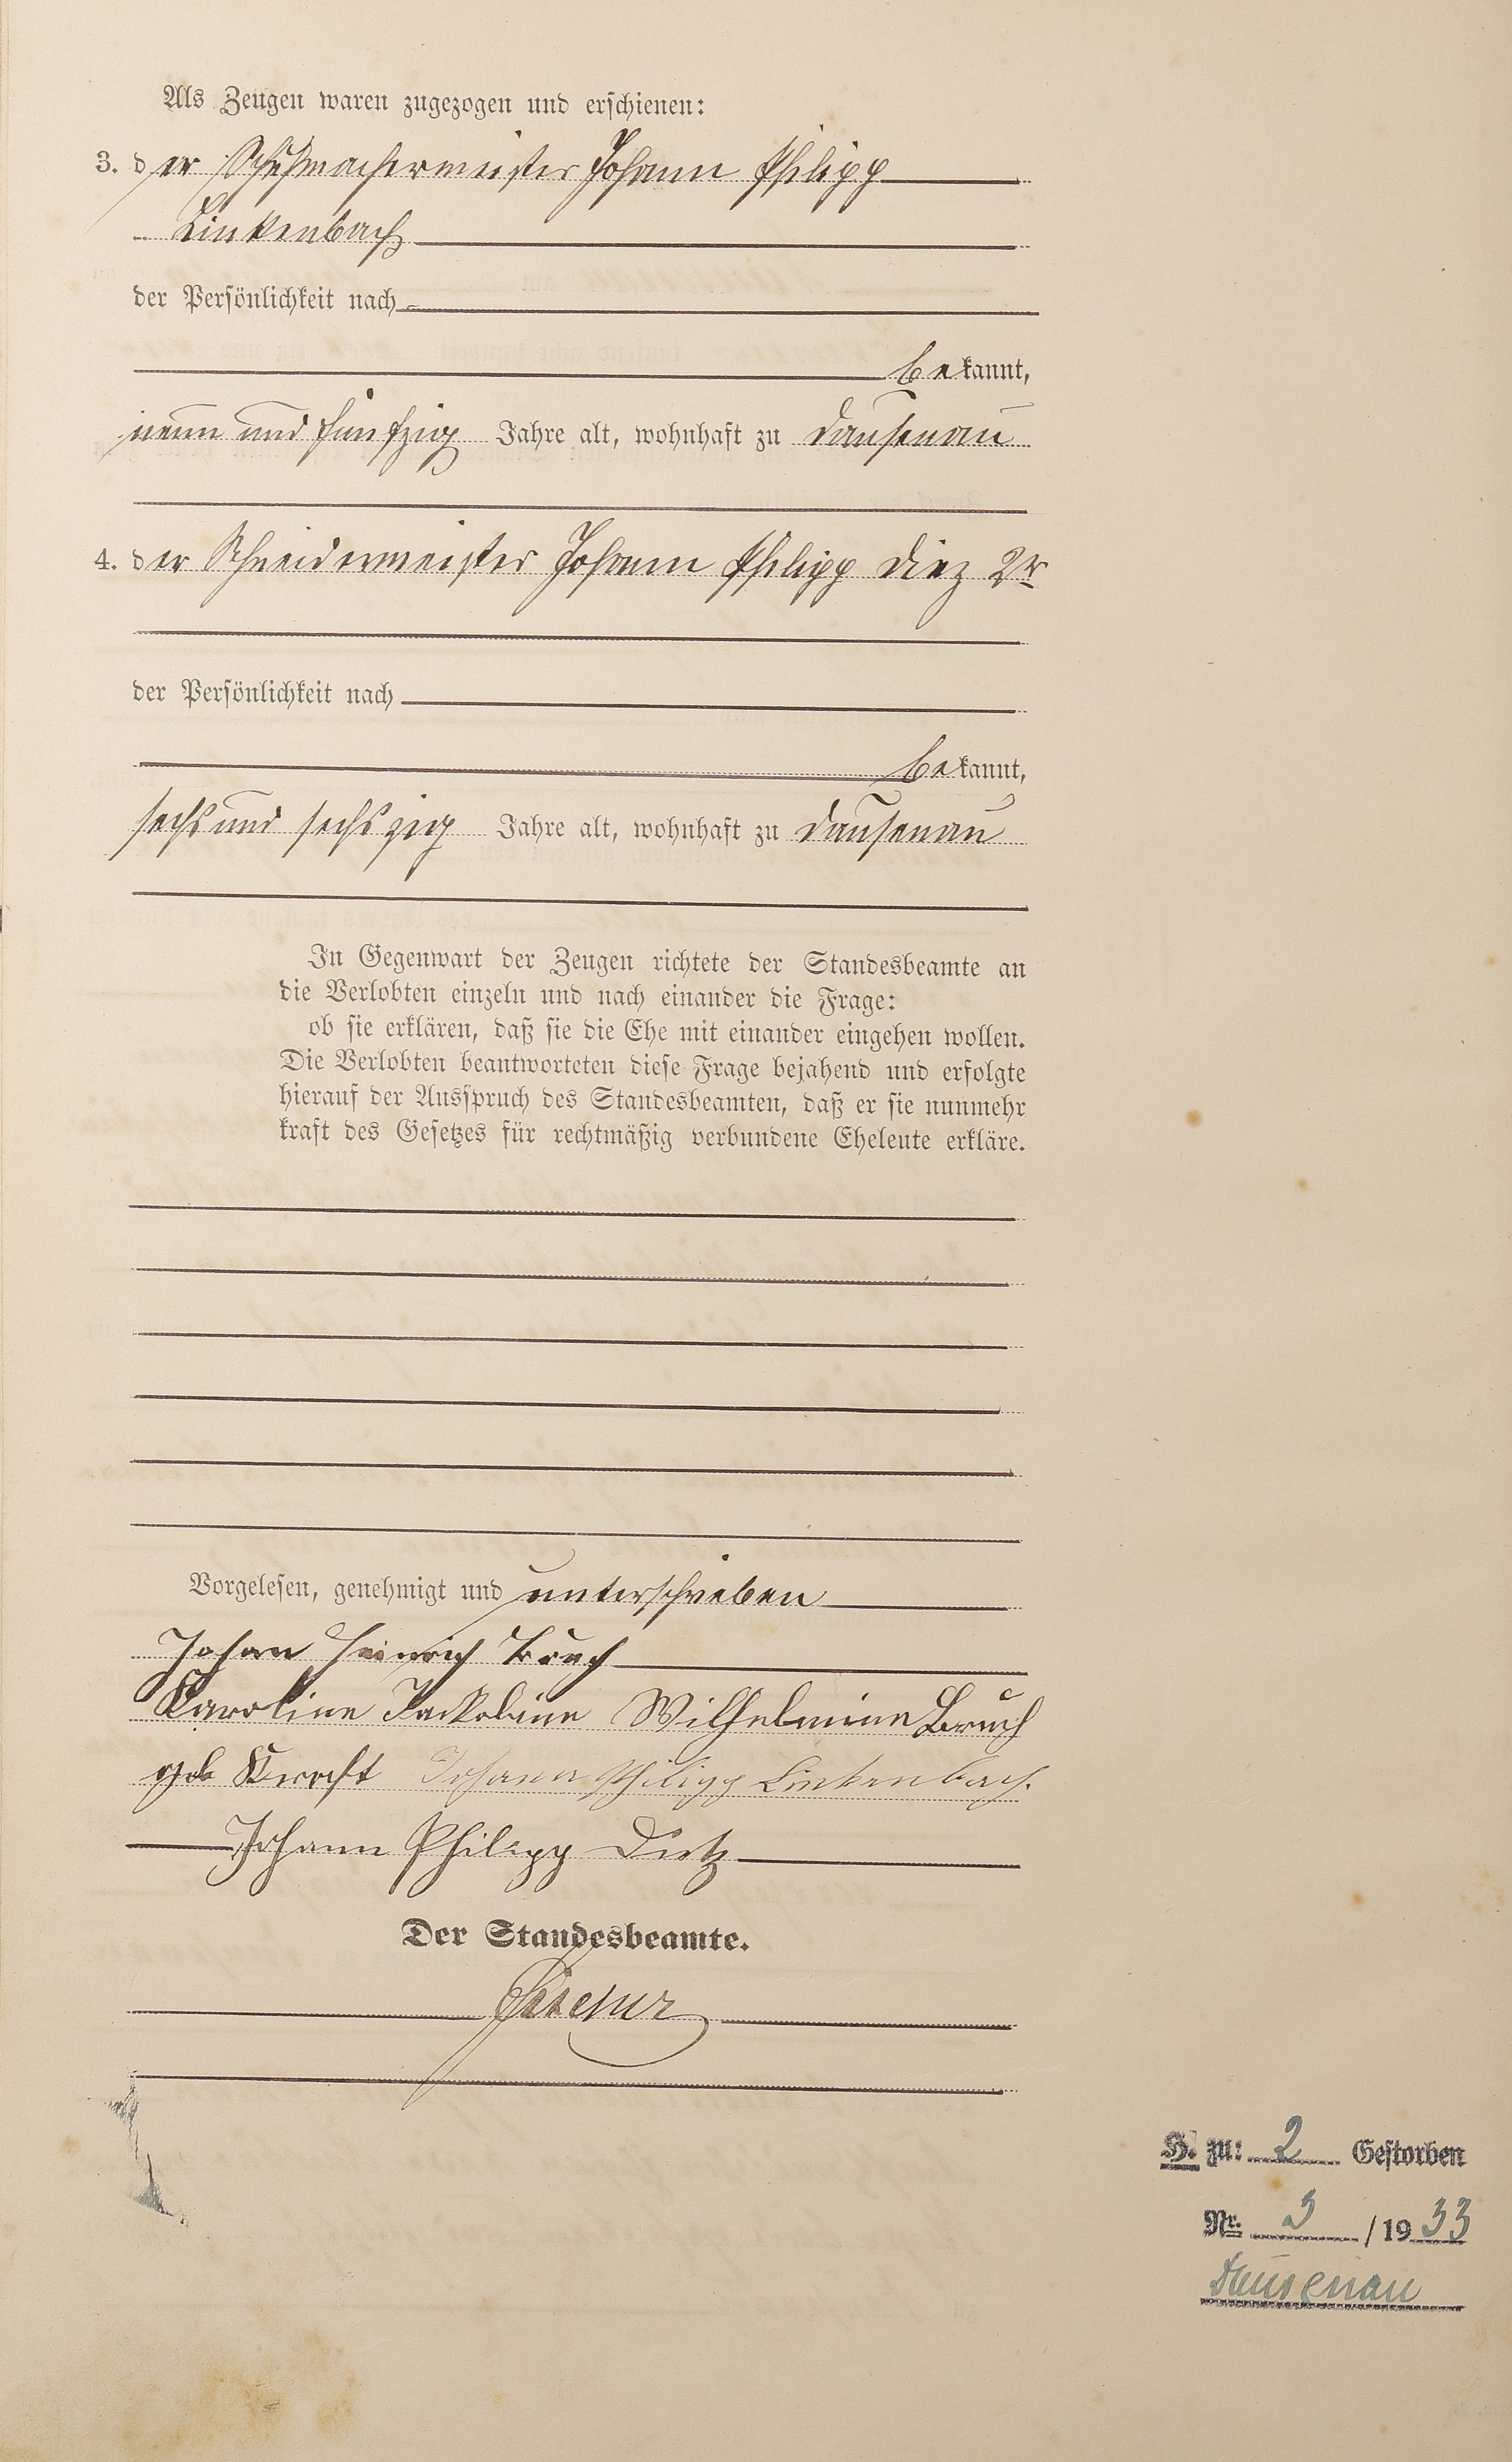 Als Zeugen waren zugezogen und erschienen:
3. der Schuhmachermeister Johann Philipp
Linkenbach
der Persönlichkeit nach
bekannt,
neun und fünfzig Jahre alt, wohnhaft zu Dausenau
4. der Schneidermeister Johann Philipp Diez 2r
der Persönlichkeit nach
bekannt,
sechs und sechszig Jahre alt, wohnhaft zu Dausenau
In Gegenwart der Zeugen richtete der Standesbeamte an
die Verlobten einzeln und nach einander die Frage:
ob sie erklären, daß sie die Ehe mit einander eingehen wollen.
Die Verlobten beantworteten diese Frage bejahend und erfolgte
hierauf der Ausspruch des Standesbeamten, daß er sie nunmehr
kraft des Gesetzes für rechtmäßig verbundene Eheleute erkläre.
Vorgelesen, genehmigt und unterschrieben
Johan Heinrich Bruch
Karoline Jackobine Wilhelmine Bruch
geb Kraft Johann Philipp Linkenbach.
Johann Philipp Dietz
Der Standesbeamte.
H. zu: 2 Gestorben
Nr. 3 / 1933
Dausenau